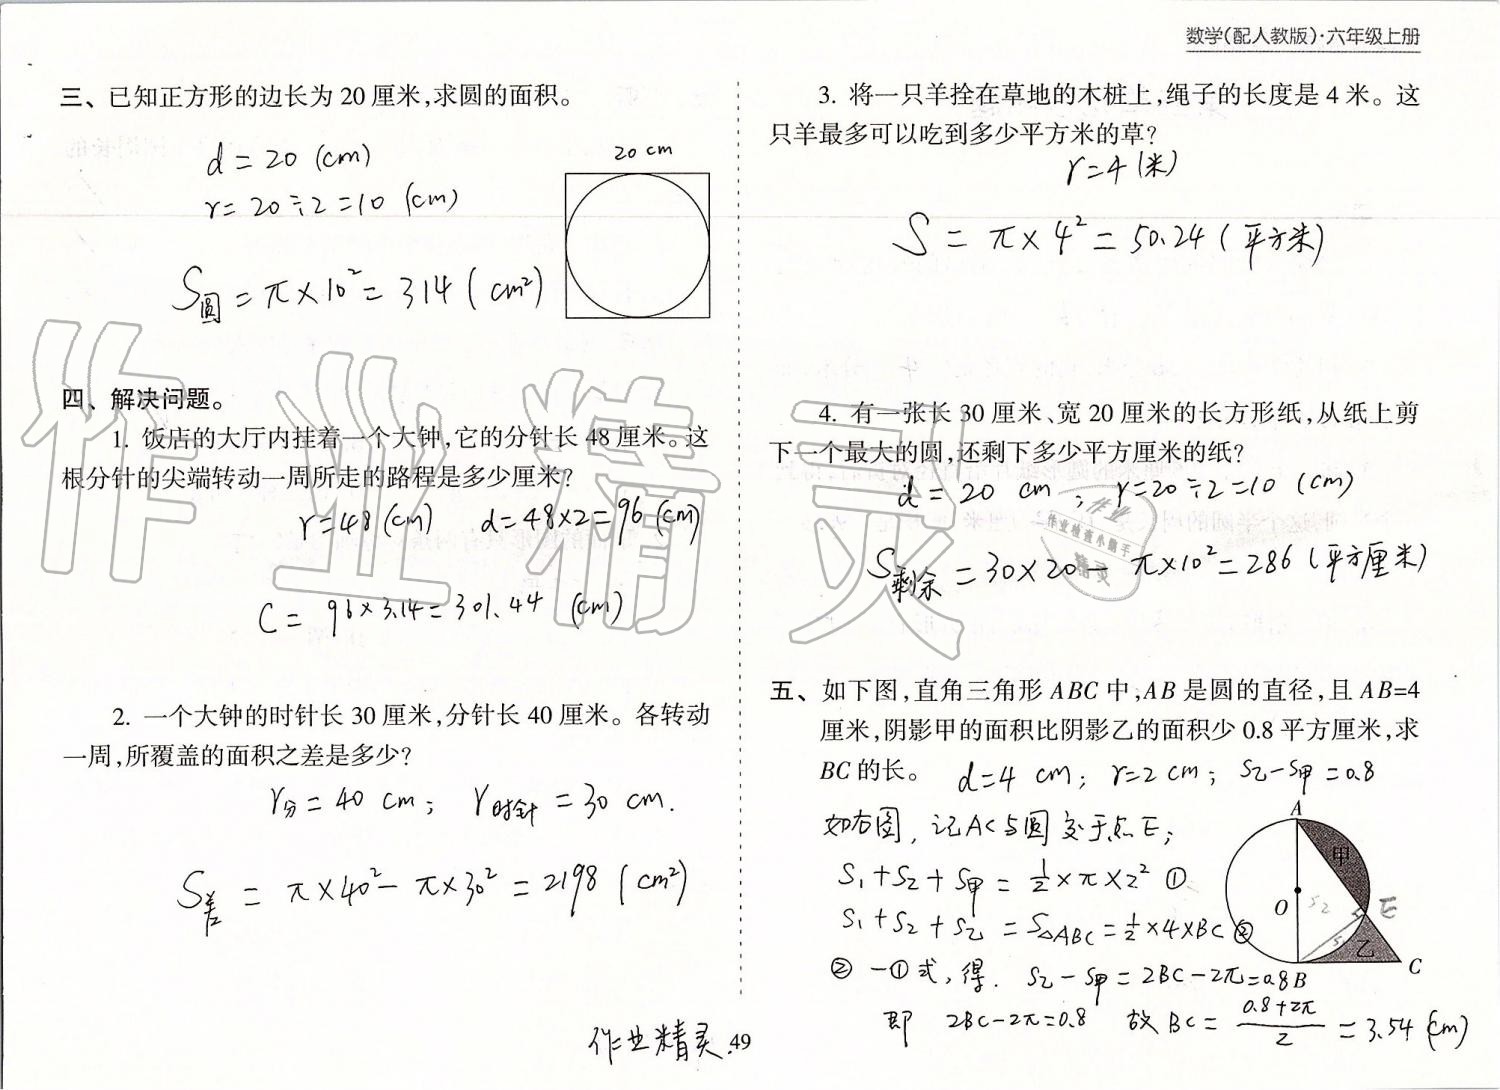 数学(配人教版)·六年级上册
三、已知正方形的边长为 20 厘米,求圆的面积。
d = 20 (cm)
r = 20÷2 = 10 (cm)
20 cm
S圆 = π×10² = 314 ( cm²)
四、解决问题。
1. 饭店的大厅内挂着一个大钟,它的分针长 48 厘米。这
根分针的尖端转动一周所走的路程是多少厘米?
r=48 (cm) d=48×2=96 (cm)
C = 96×3.14=301.44 (cm)
2. 一个大钟的时针长 30 厘米,分针长 40 厘米。各转动
一周,所覆盖的面积之差是多少?
r分 = 40 cm; r时针 = 30 cm.
S差 = π×40² - π×30² = 2198 ( cm²)
3. 将一只羊拴在草地的木桩上,绳子的长度是 4 米。这
只羊最多可以吃到多少平方米的草?
r=4 (米)
S = π×4² = 50.24 (平方米)
4. 有一张长 30 厘米、宽 20 厘米的长方形纸,从纸上剪
下一个最大的圆,还剩下多少平方厘米的纸?
d = 20 cm ; r=20÷2=10 (cm)
S剩余 = 30×20 - π×10² = 286 (平方厘米)
五、如下图,直角三角形 ABC 中,AB 是圆的直径,且 AB=4
厘米,阴影甲的面积比阴影乙的面积少 0.8 平方厘米,求
BC 的长。 d=4 cm; r=2 cm; S乙-S甲=0.8
如右图, 记AC与圆交于点E;
S₁+S₂+S甲 = ½×π×2² ①
S₁+S₂+S乙 = S△ABC = ½×4×BC ②
②-①式,得. S乙-S甲=2BC-2π=0.8
即 2BC-2π=0.8 故BC = (0.8+2π)/2 = 3.54 (cm)
A
甲
O
S₂
E
S₁
乙
B
C
作业精灵
49
作业精灵
作业
作业检查小能手
精灵